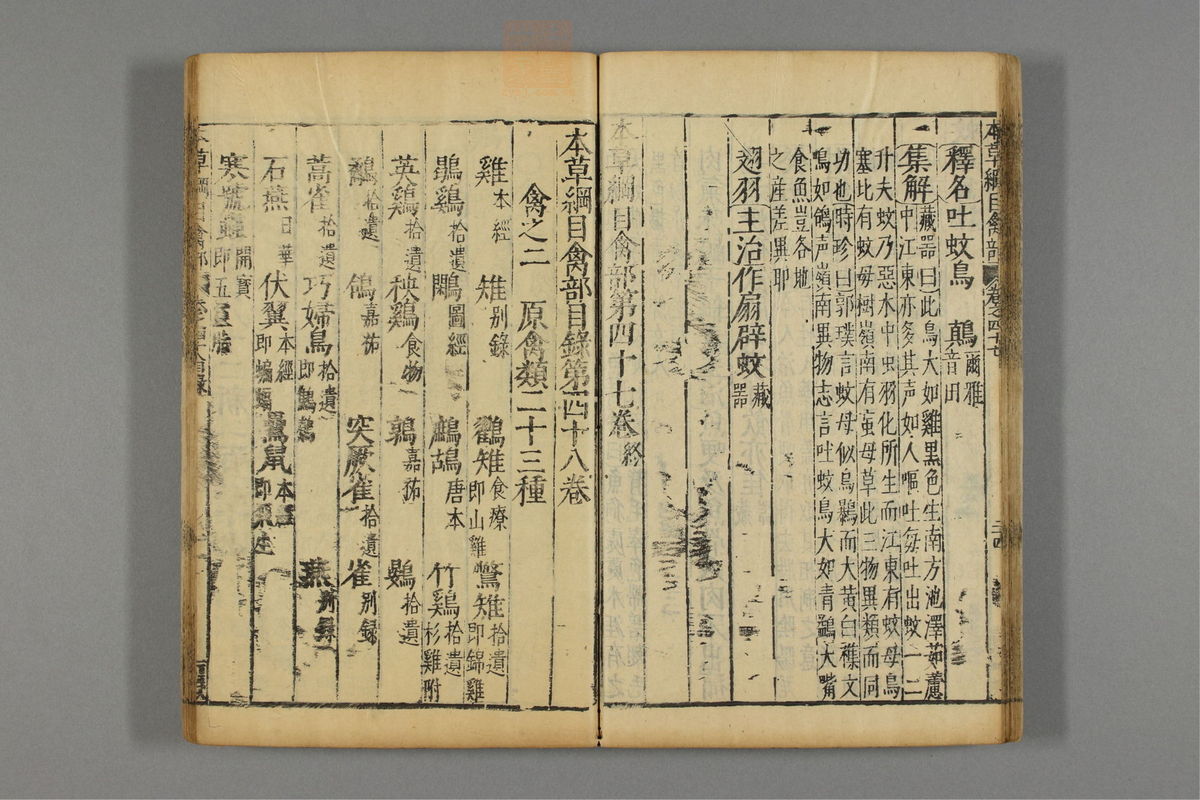 釋名吐蚊鳥 鷏爾雅音田
集解藏器曰此鳥大如雞黒色生南方池澤茹藘
中江東亦多其声如人嘔吐每吐出蚊一二
升夫蚊乃惡水中虫羽化所生而江東有蚊母鳥
塞北有蚊母樹嶺南有䖟母草此三物異類而同
功也時珍曰郭璞言蚊母似烏鸔而大黄白雜文
鳴如鴿声嶺南異物志言吐蚊鳥大如青鷁大嘴
食魚豈各地
之産差異耶
翅羽主治作扇辟蚊藏器
本草綱目禽部第四十七卷終
本草綱目禽部目錄第四十八卷
禽之二 原禽類二十三種
雞本經 雉别錄 鸐雉食療即山雞 鷩雉拾遺即錦雞
鶡鷄拾遺 鷴圖經 鷓鴣唐本 竹鷄拾遺杉雞附
英鷄拾遺 秧鷄食物 鶉嘉祐 鷃拾遺
鷸拾遺 鴿嘉祐 突厥雀拾遺 雀别録
蒿雀拾遺 巧婦鳥拾遺即鷦鷯 燕别録
石燕日華 伏翼本經即蝙蝠 鸓鼠本經
寒號蟲開寶即五靈脂